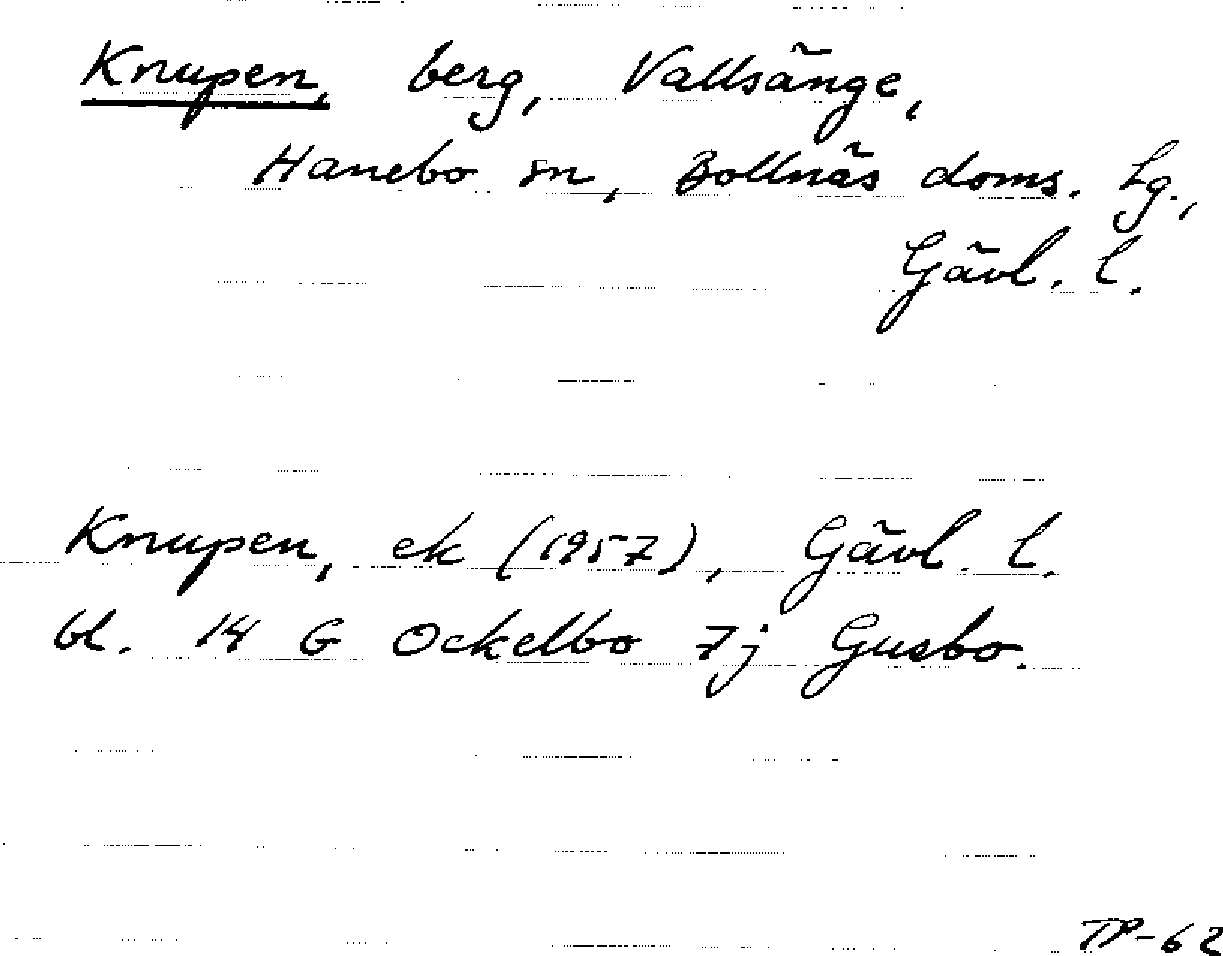 Knupen, berg, Vallsänge,
Hanebo sn, Bollnäs doms. Lg.,
Gävl. l.
Knupen, ek (1957), Gävl. l.
bl. 14 G Ockelbo 7j Gusbo.
TP-62